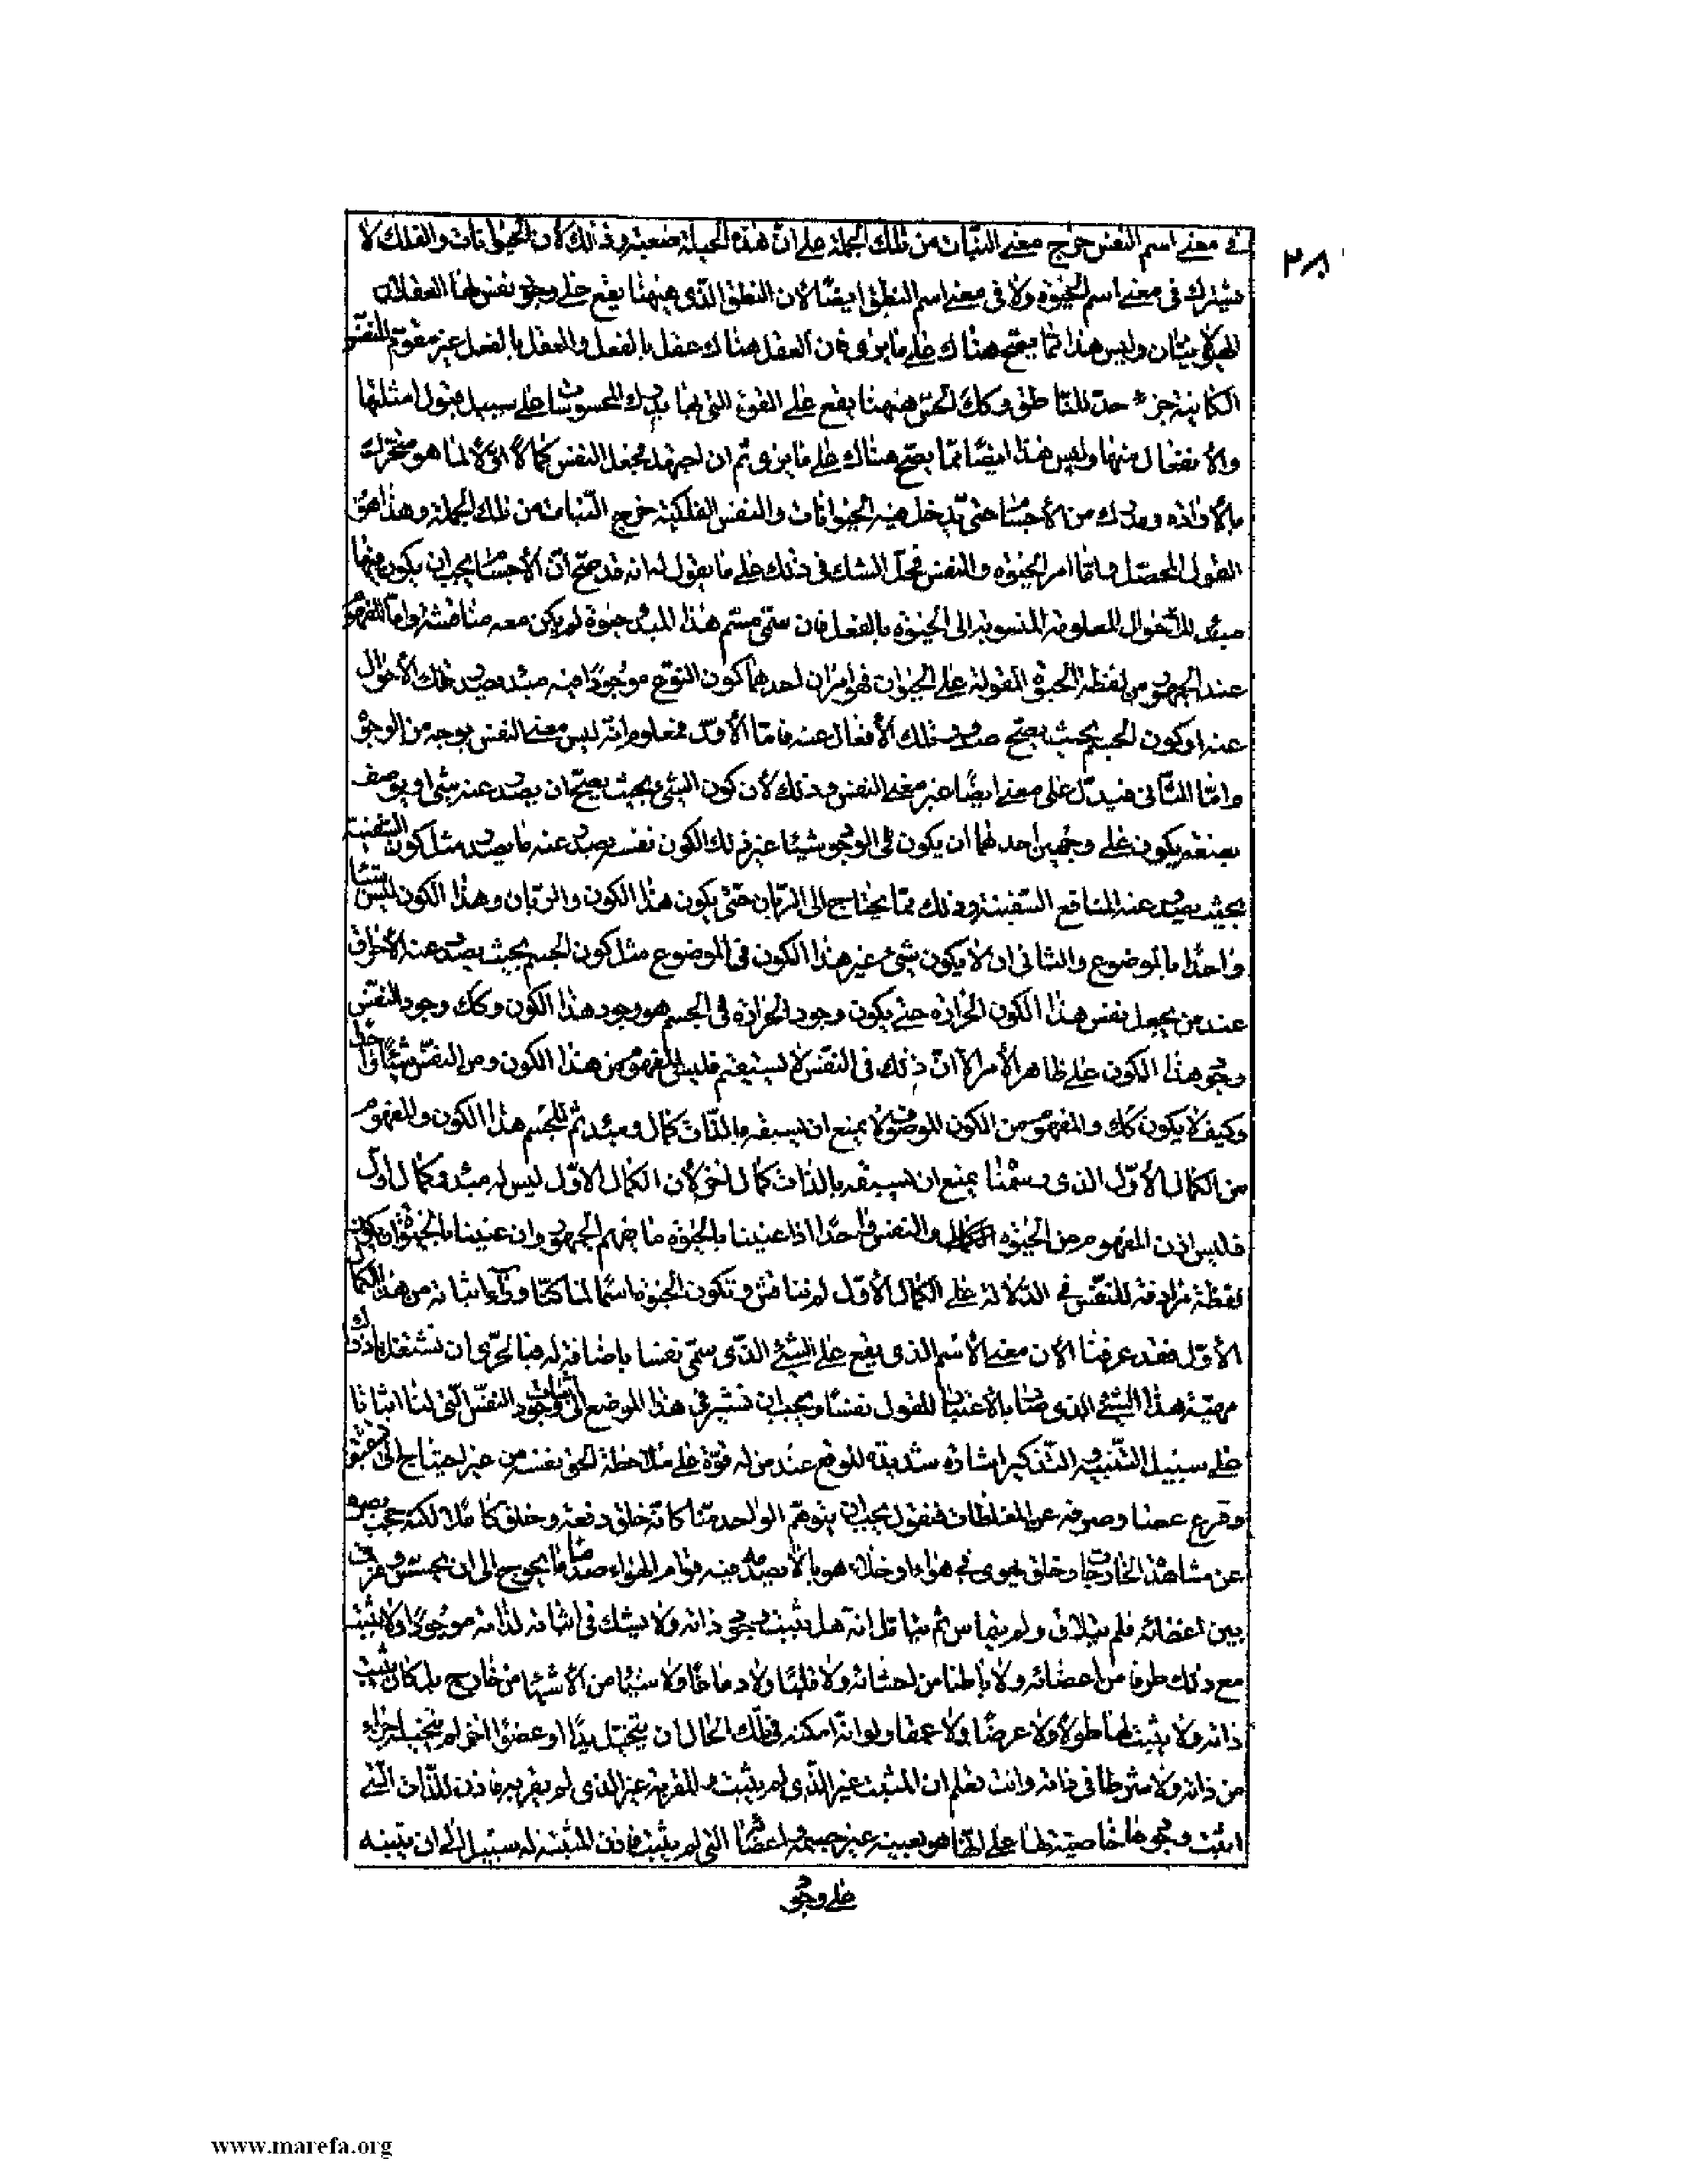 فى معنى اسم النفس خرج معنى النبات من تلك الجملة على ان هذه الحيلة صعبة وذلك لان الحيوانات والفلك لا
يشترك فى معنى اسم الحيوة ولا فى معنى اسم النطق ايضا لان النطق الذى هيهنا يقع على وجود نفس لها العقلان
الهيولانيان وليس هذا مما يصح هناك على ما يرى فان العقل هناك عقل بالفعل والعقل بالفعل غير مقوم للنفس
الكائنة جزء حد للناطق وكك الحس هيهنا يقع على القوة التى بها يدرك المحسوسات على سبيل قبول امثلتها
والانفعال منها وليس هذا ايضا مما يصح هناك على ما يرى ثم ان اجتهد فجعل النفس كمالا اولا لما هو متحرك
بالارادة ومدرك من الاجسام حتى تدخل فيه الحيوانات والنفس الفلكية خرج النبات من تلك الجملة وهذا هو
القول المحصل واما امر الحيوة والنفس فحل الشك فى ذلك على ما يقول له انه قد صح ان الاجسام يجب ان يكون فيها
مبدء للاحوال المعلومة المنسوبة الى الحيوة بالفعل فان سمى مسم هذا المبدء حيوة لم يكن معه مناقشة واما المفهوم
عند الجمهور من لفظة الحيوة المقولة على الحيوان فهو امران احدهما كون النوع موجودا فيه مبدء يصدر تلك الاحوال
عنه او كون الجسم بحيث يصح صدور تلك الافعال عنه فاما الاول فمعلوم انه ليس معنى النفس بوجه من الوجوه
واما الثانى فيدل على معنى ايضا غير معنى النفس وذلك لان كون الشئ بحيث يصح ان يصدر عنه شئ او يوصف
بصفة يكون على وجهين احدهما ان يكون فى الوجود شيئا غير ذلك الكون نفسه يصدر عنه ما يصدر مثل كون السفينة
بحيث يصدر عنه المنافع السفينة وذلك مما يحتاج الى الربان حتى يكون هذا الكون والربان وهذا الكون ليس شيئا
واحدا بالموضوع والثانى ان لا يكون شئ غير هذا الكون فى الموضوع مثل كون الجسم بحيث يصدر عنه الاحراق
عند من يجعل نفس هذا الكون الحرارة حتى يكون وجود الحرارة فى الجسم هو وجود هذا الكون وكك وجود النفس
وجود هذا الكون على ظاهر الامر الا ان ذلك فى النفس لا يستقيم فليس المفهوم من هذا الكون ومن النفس شيئا واحدا
وكيف لا يكون كك والمفهوم من الكون الموصوف لا يمنع ان يسبقه بالذات كمال ومبدء ثم للجسم هذا الكون والمفهوم
من الكمال الاول الذى رسمنا يمنع ان يسبقه بالذات كمال اخر لان الكمال الاول ليس له مبدء وكمال اول
فليس اذن المفهوم من الحيوة والنفس واحدا اذا عنينا بالحيوة ما يفهم الجمهور وان عنينا بالحيوة ان يكون
لفظة مرادفة للنفس فى الدلالة على الكمال الاول لم نناقش وتكون الحيوة اسما لما كنا وراء اثباته من هذا الكمال
الاول فقد عرفنا الان معنى الاسم الذى يقع على الشئ الذى سمى نفسا باضافة له فبالحرى ان نشتغل بادراك
مهية هذا الشئ الذى صار بالاعتبار المقول نفسا ويجب ان نشير فى هذا الموضع الى اثبات وجود النفس التى لنا اثباتا
على سبيل التنبيه والتذكير اشارة شديدة الموقع عند من له قوة على ملاحظة الحق نفسه من غير احتياج الى تثقيفه
وقرع عصا وصرفه عن المغلطات فنقول يجب ان يتوهم الواحد منا كانه خلق دفعة وخلق كاملا لكنه حجب بصره
عن مشاهدة الخارجات وخلق يهوى فى هواء او خلاء هويا لا يصدمه فيه قوام الهواء صدما ما يحوج الى ان يحس وفرق
بين اعضائه فلم يتلاق ولم يتماس ثم يتأمل انه هل يثبت وجود ذاته ولا يشك فى اثباته لذاته موجودا ولا يثبت
مع ذلك طرفا من اعضائه ولا باطنا من احشائه ولا قلبا ولا دماغا ولا شيئا من الاشياء من خارج بل كان يثبت
ذاته ولا يثبت لها طولا ولا عرضا ولا عمقا ولو انه امكنه فى تلك الحال ان يتخيل يدا او عضوا اخر لم يتخيله جزء
من ذاته ولا شرطا فى ذاته وانت تعلم ان المثبت غير الذى لم يثبت والمقربة غير الذى لم يقربه فاذن للذات التى
اثبت وجودها خاصية لها على انها هو بعينه غير جسمه واعضائه التى لم يثبت فاذن المثبت له سبيل الى ان يتنبه
على وجود
٣٨١
www.marefa.org